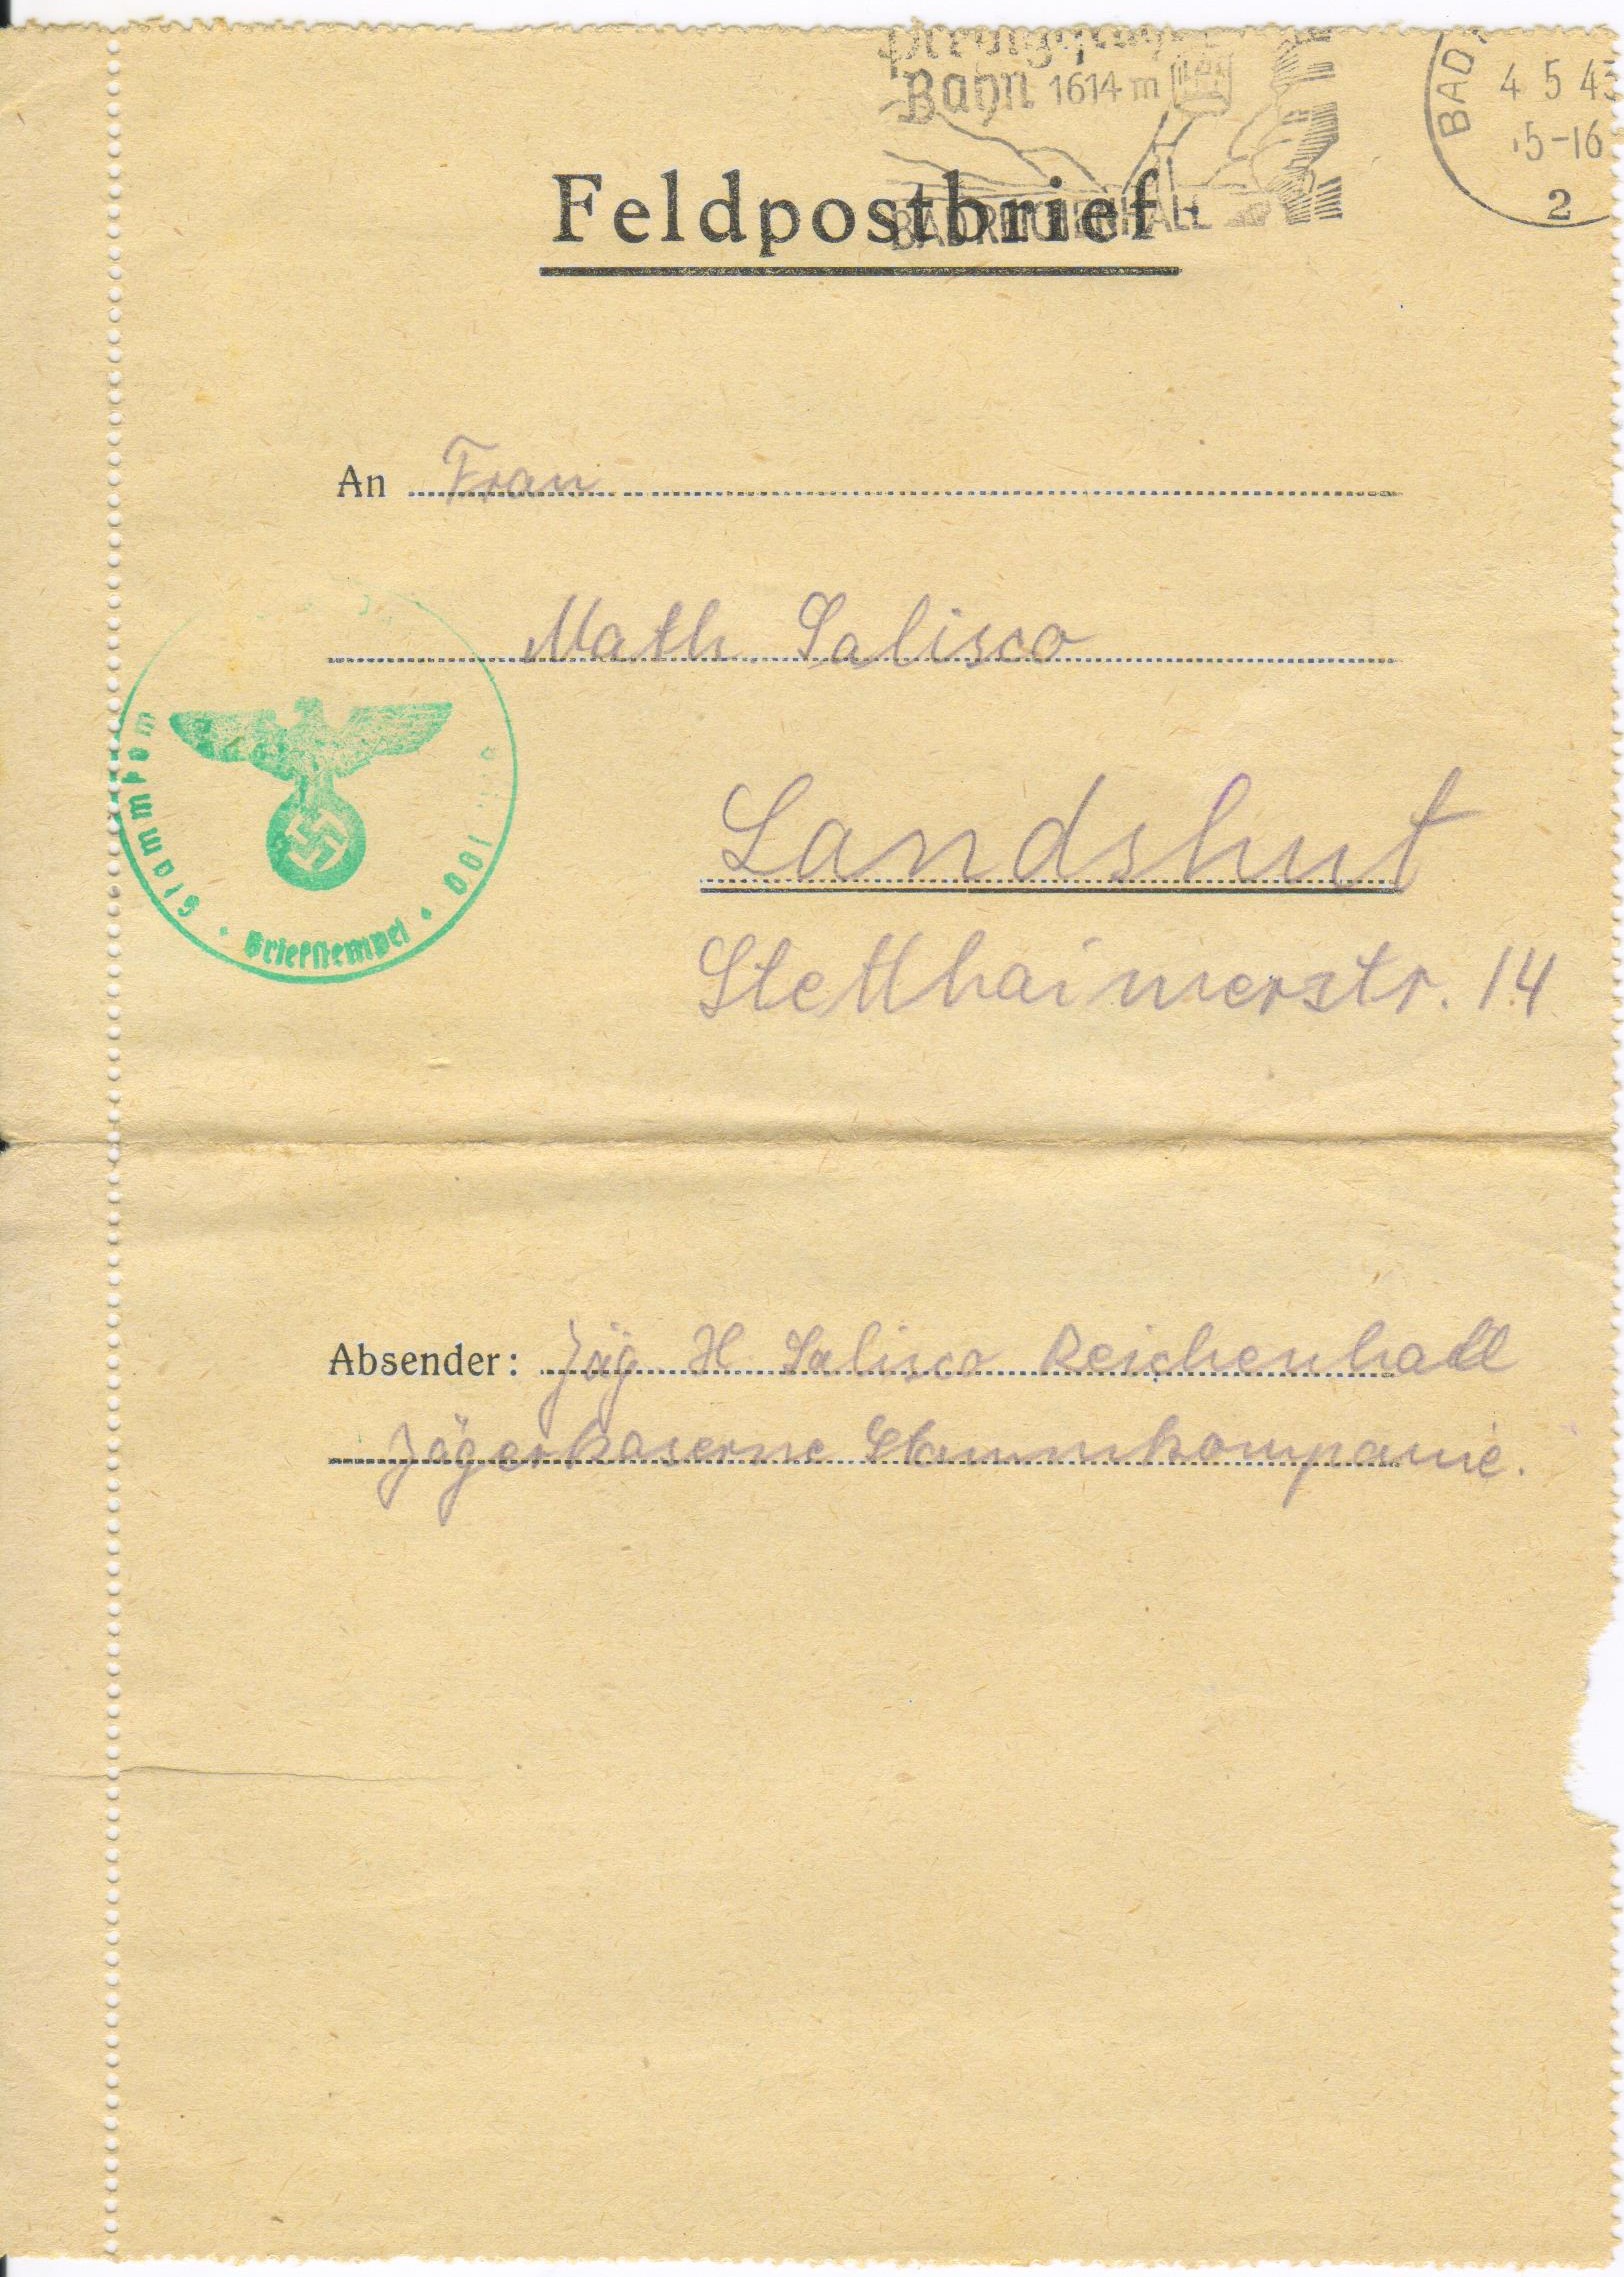 Bahn 1614 m
BAD REICHENHALL
BAD
4 5 43
5-16
2
Feldpostbrief
An Frau
Math. Salisco
Landshut
Stetthaimerstr. 14
Stammkom
Briefstempel
Absender: Jäg. H Salisco Reichenhall
Jägerkaserne Stammkompanie.